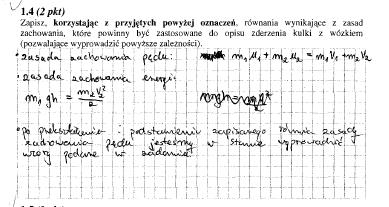 1.4 (2 pkt)
Zapisz, korzystając z przyjętych powyżej oznaczeń, równania wynikające z zasad
zachowania, które powinny być zastosowane do opisu zderzenia kulki z wózkiem
(pozwalające wyprowadzić powyższe zależności).
• zasada zachowania pędu: m₁u₁ + m₂u₂ = m₁V₁ + m₂V₂
• zasada zachowania energii:
m₁gh = m₂V₂²/2
• po przekształceniu i podstawieniu zapisanego równania zasady
zachowania pędu jesteśmy w stanie wyprowadzić
wzory podane w zadaniu